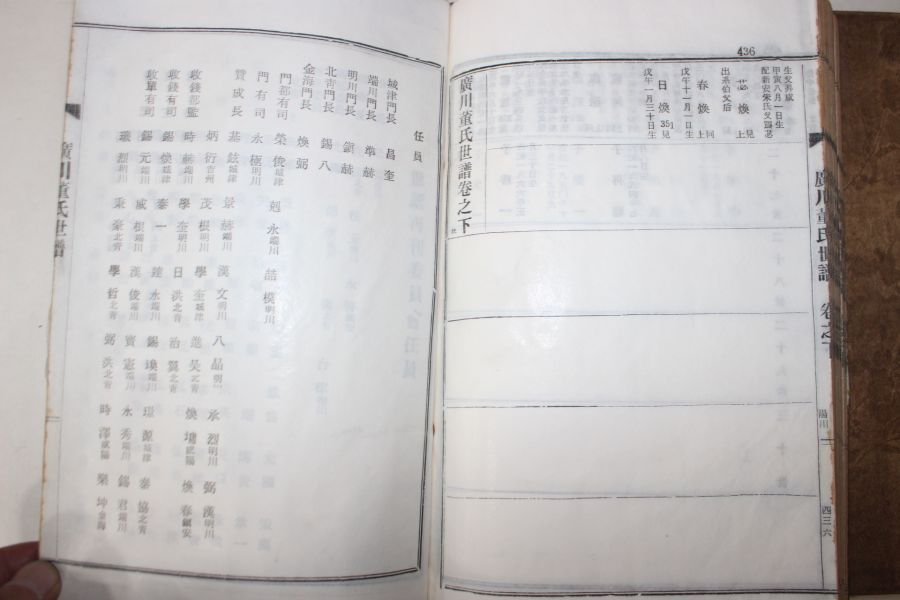 436
生父昇咸
甲寅八月一日生
煥 見上
出系伯父后
春煥 同上
戊午十一月一日生
日煥 見351上
戊午一月三十日生
廣川董氏世譜卷之下
廣川董氏世譜 卷之下
四三六
任員
城津門長 昌奎
端川門長 準赫
明川門長 錫赫
北靑門長 錫八
金海門長 煥弼
門都有司 榮俊城津 剋永端川 喆模明川
門有司 永極明川
贊成長 基鉉城津 景赫端川 漢文明川 八晶明川 承烈明川 弼漢明川
炳衍吉州 茂根明川 學奎城津 進昊元靑 煥墉咸陽 煥春鎭安
收錢都監 時赫端川 學金明川 日洪北靑 治翼北靑
收錢有司 錫煥城津 泰一 鍾永端川 錫璟端川 璡源城津 泰協北靑
收單有司 錫元端川 咸根端川 漢俊端川 寶憲端川 永秀端川 錫君端川
烈明川 秉豪北靑 學哲北靑 弼洪北靑 時澤咸陽 榮坤金海
廣川董氏世譜